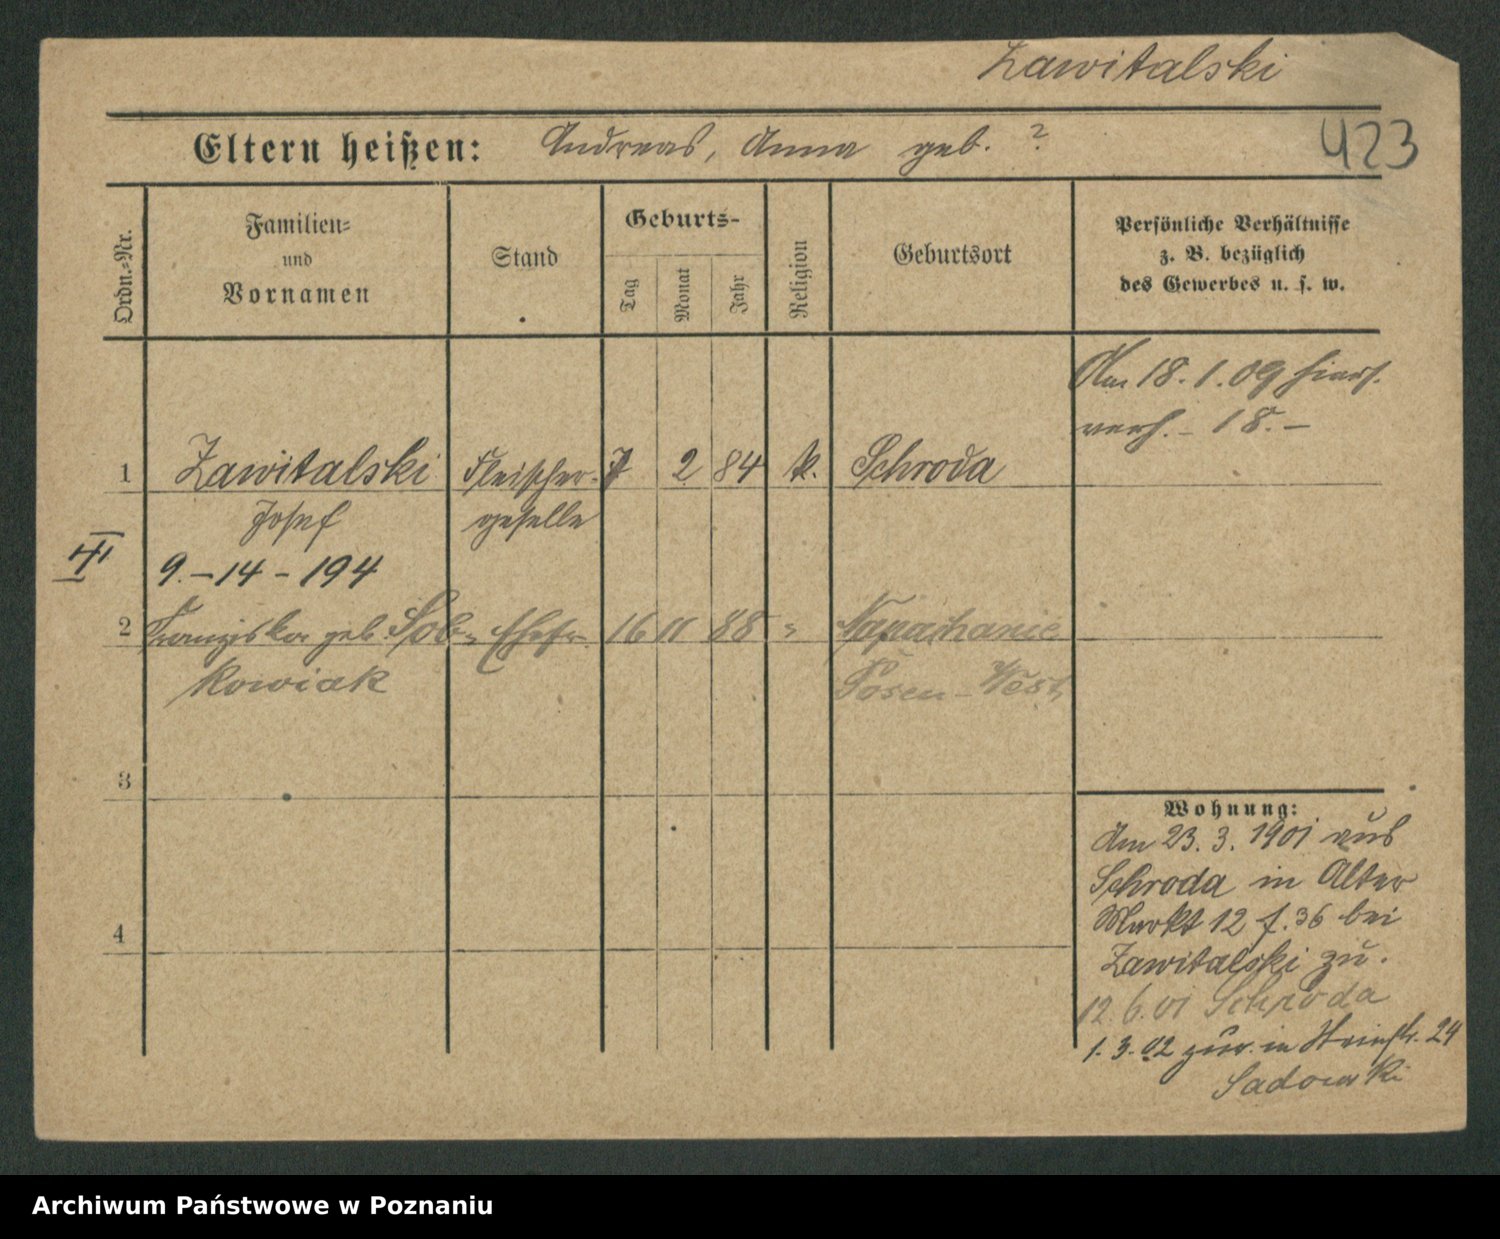 Zawitalski
Eltern heißen: Andreas, Anna geb. ?
423
Ordn.-Nr.
Familien-
und
Vornamen
Stand
Geburts-
Tag
Monat
Jahr
Religion
Geburtsort
Persönliche Verhältnisse
z. B. bezüglich
des Gewerbes u. s. w.
Am 18. 1. 09 hiers.
verh. - 18. -
1 Zawitalski Fleischer- 7 2 84 k. Schroda
Josef geselle
9. - 14 - 194
2 Franziska geb. Sob- Ehefr. 16 11 88 " Napachanie
kowiak Posen-West
3
4
Wohnung:
Am 23. 3. 1901 aus
Schroda in Alter
Markt 12 f. 36 bei
Zawitalski zu.
12. 6. 01 Schroda
1. 3. 02 zur. in Steinstr. 24
Sadowski
Archiwum Państwowe w Poznaniu